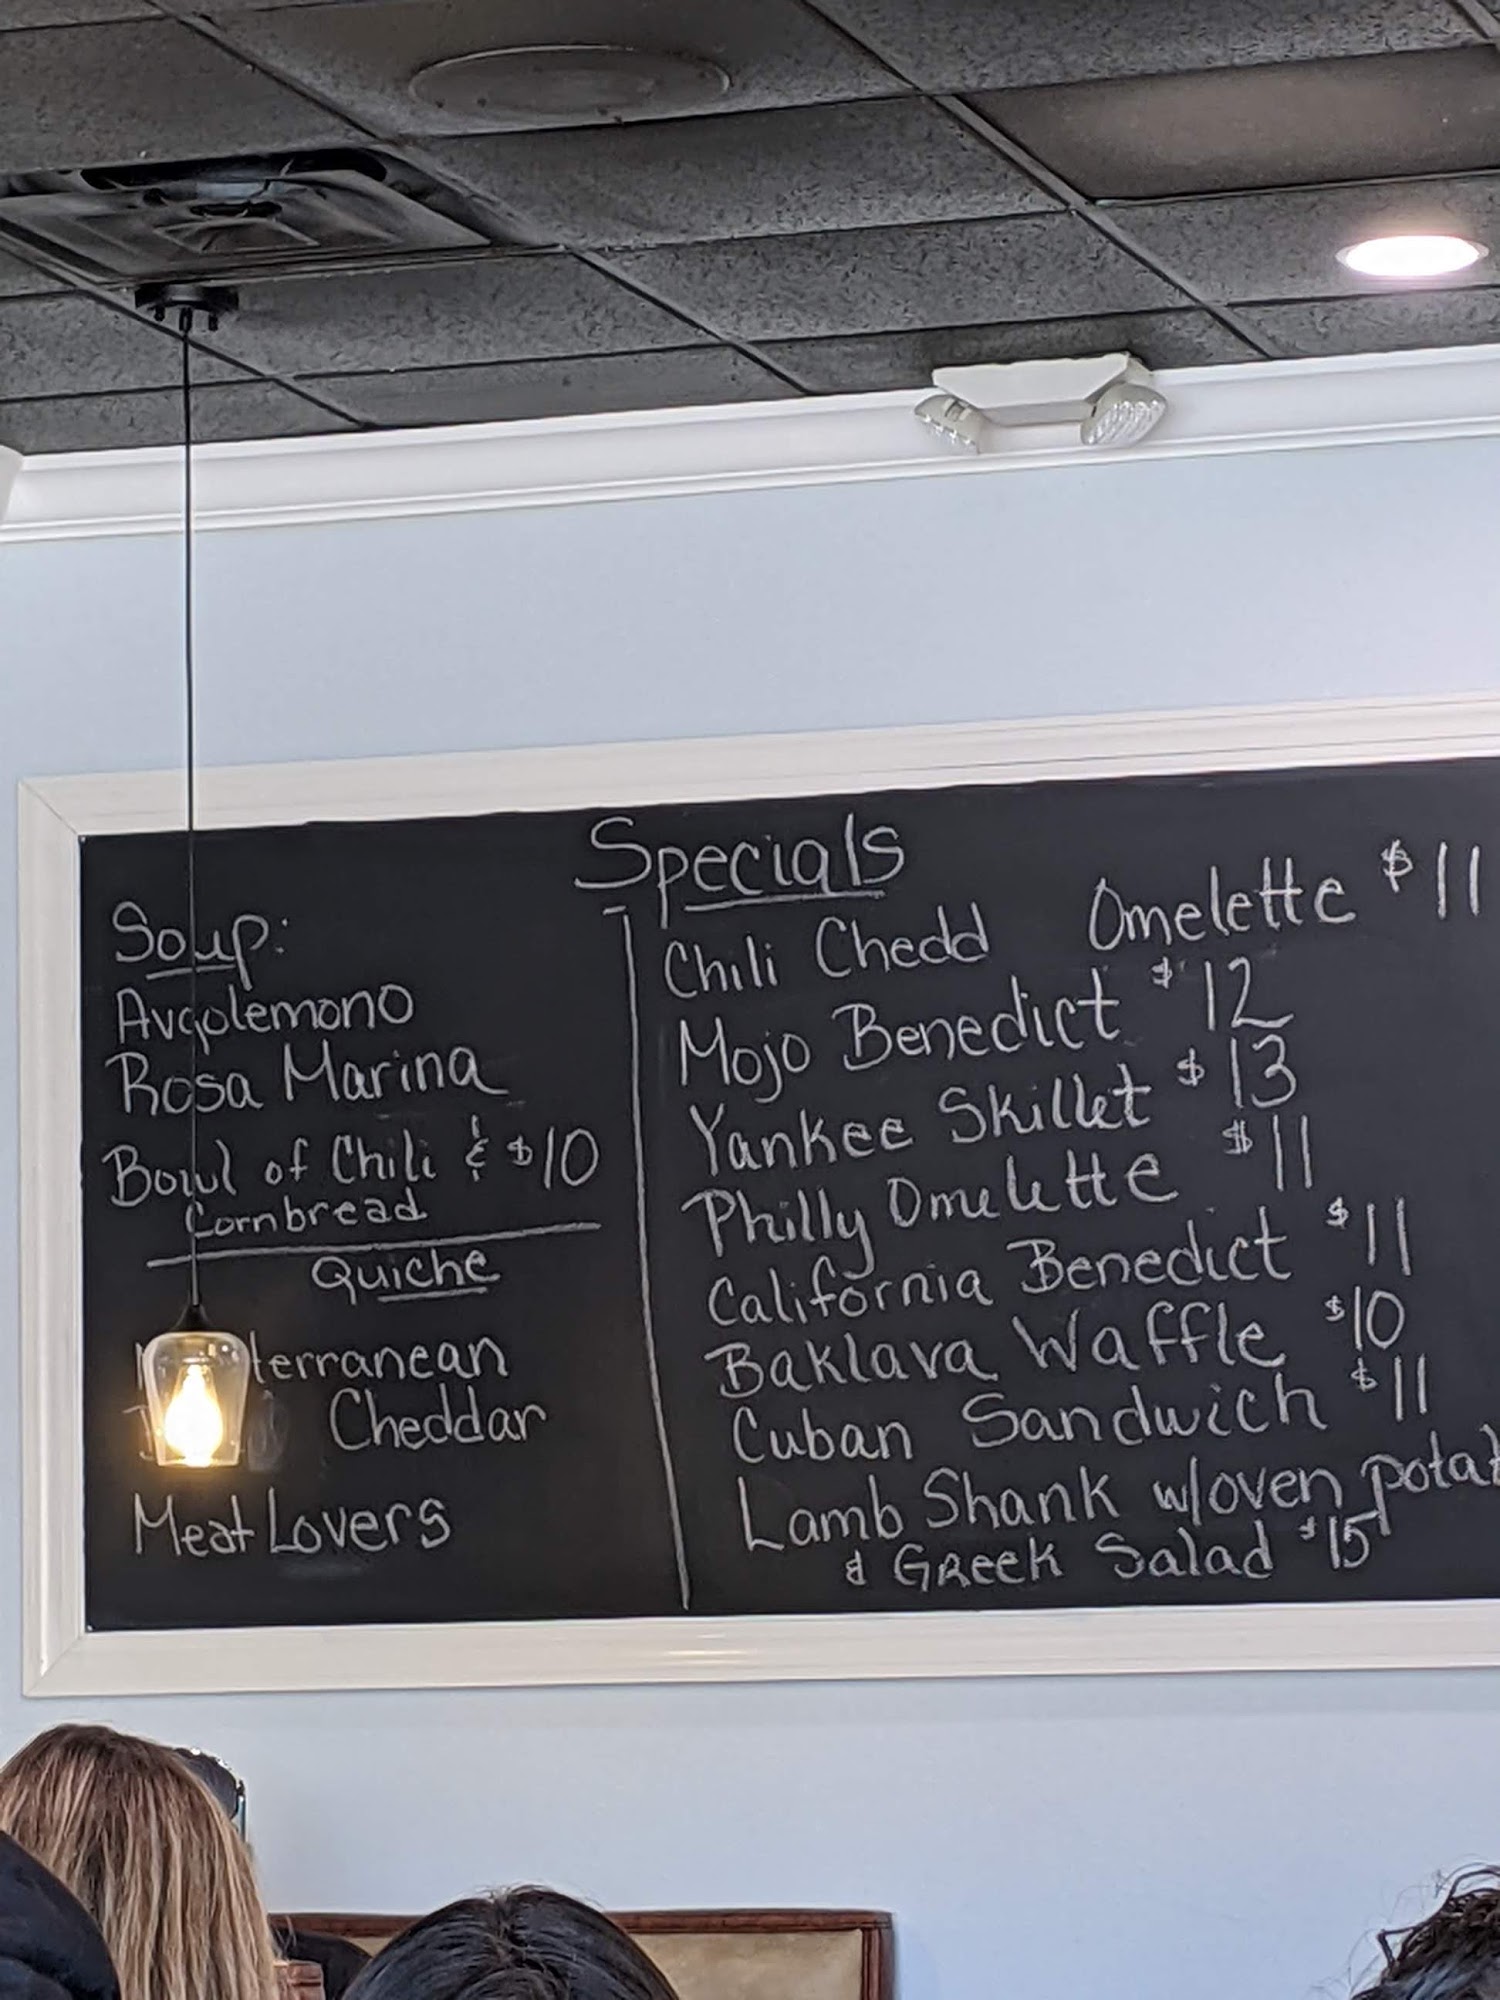 Specials
Soup:
Avgolemono
Rosa Marina
Bowl of Chili & $10
Cornbread
Quiche
terranean
Cheddar
Meat Lovers
Chili Chedd Omelette $11
Mojo Benedict $12
Yankee Skillet $13
Philly Omelette $11
California Benedict $11
Baklava Waffle $10
Cuban Sandwich $11
Lamb Shank w/oven potat
& Greek Salad $15